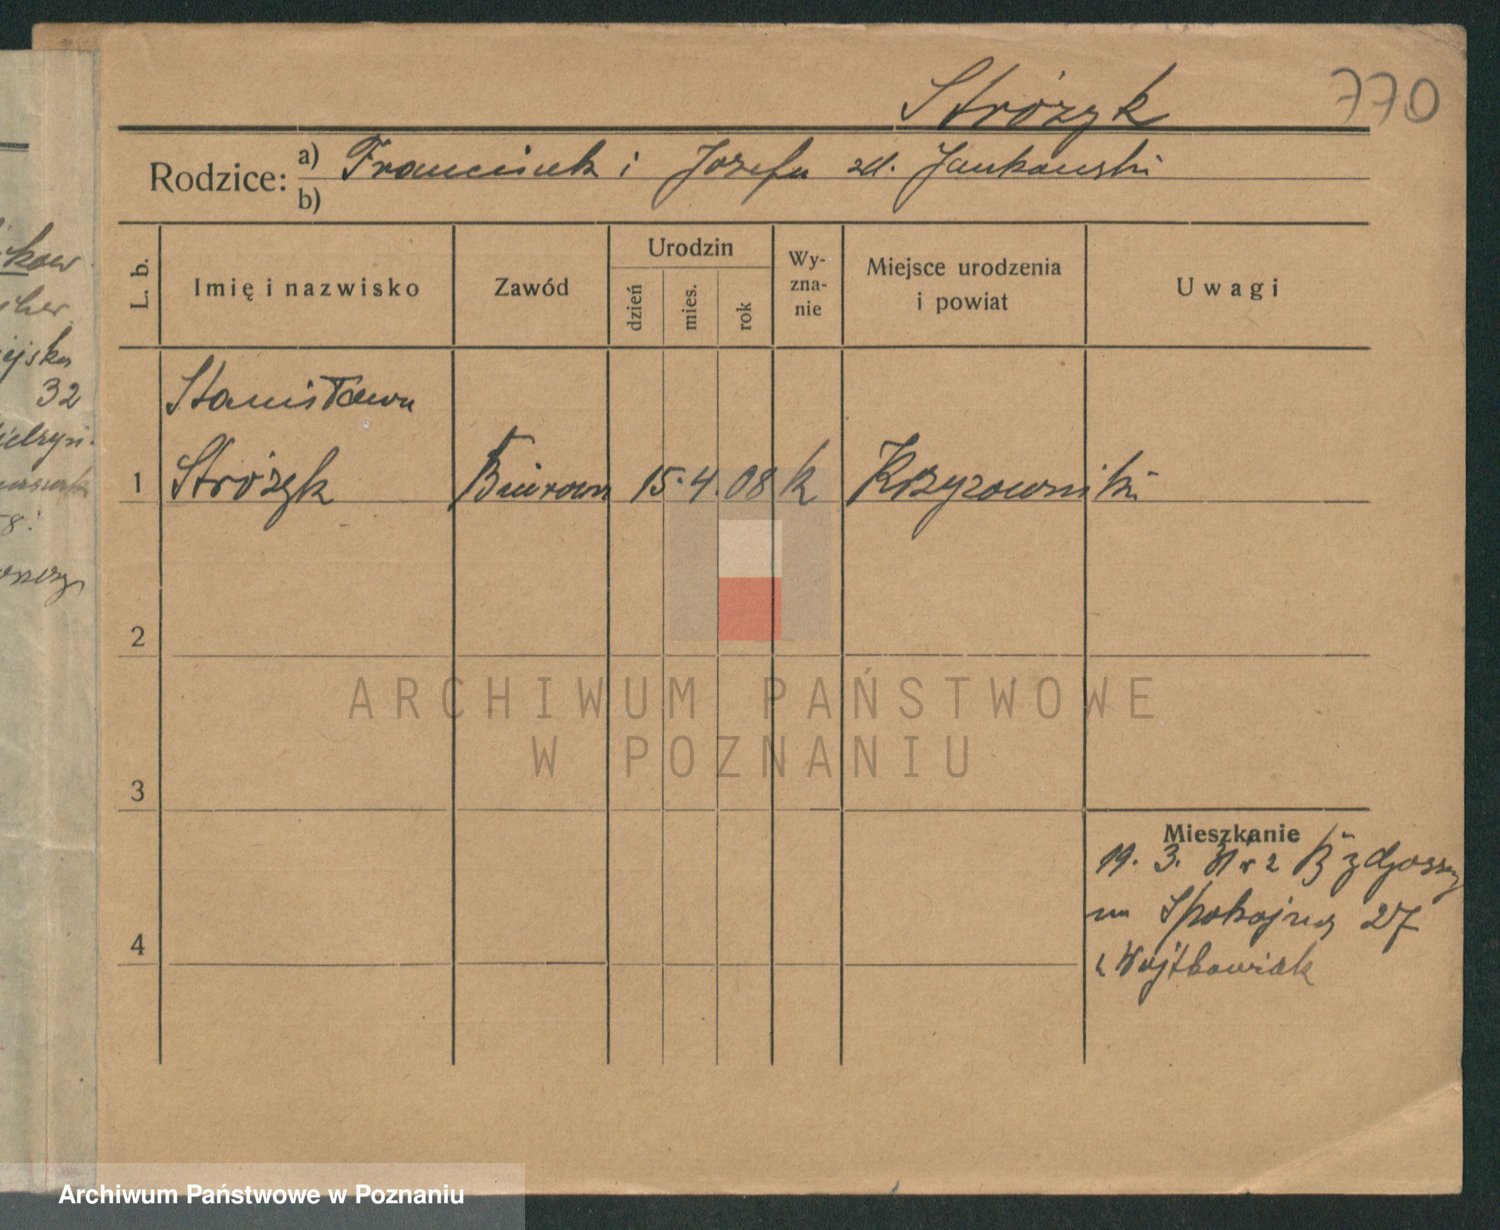 Stróżyk
770
Rodzice: a) Franciszek i Józefa zd. Jankowski
b)
L. b.
Imię i nazwisko
Zawód
Urodzin
dzień
mies.
rok
Wy-
zna-
nie
Miejsce urodzenia
i powiat
Uwagi
Stanisława
1 Stróżyk Biurowa 15. 4. 08 k Krzyżowniki
2
3
4
Mieszkanie
19. 3. z Bydgoszczy
na Spokojną 27
Wojtkowiak
32
ARCHIWUM PAŃSTWOWE
W POZNANIU
Archiwum Państwowe w Poznaniu